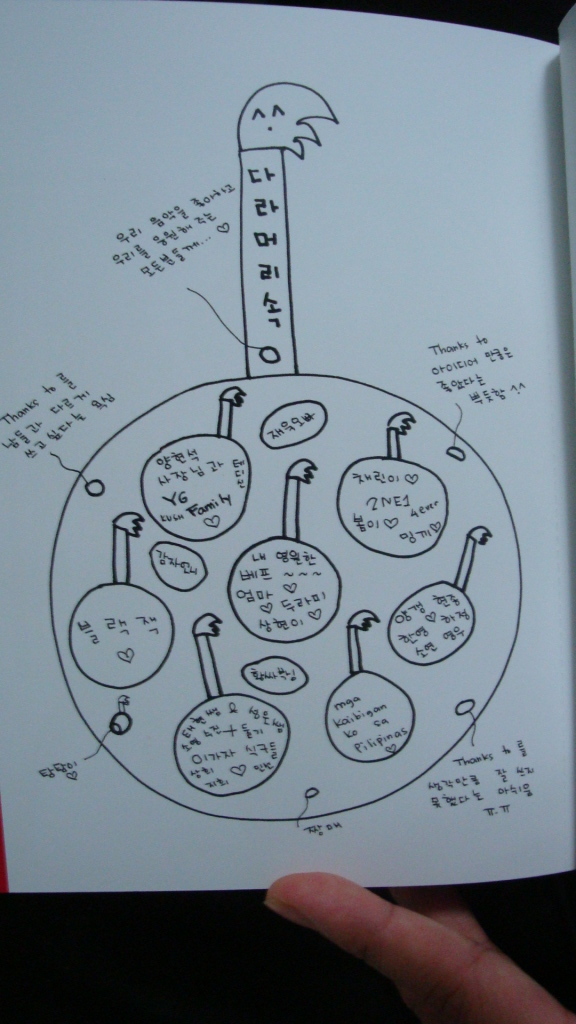 다
라
머
리
속
우리 음악을 좋아하고
우리를 응원해 주는
모든분들께... ♡
Thanks to 를
남들과 다르게
쓰고 싶다는 욕심
Thanks to
아이디어 만큼은
좋았다는
뿌듯함 ^^
재욱오빠
양현석
사장님과
YG
KUSH Family
♡
채린이 ♡
2NE1
봄이 ♡ 4ever
밍끼 ♡
감자언니
내 영원한
베프 ~~~
엄마 ♡
♡ 두라미
상현이 ♡
블랙잭
♡
양갱 현중
한영 ♡ 하정
소연 영우
황싸부님
이가자 식구들
상희 ♡
지희
mga
Kaibigan
ko sa
Pilipinas
♡
탐탐이
♡
짱매
Thanks to 를
생각만큼 잘 쓰지
못했다는 아쉬움
ㅠ.ㅠ